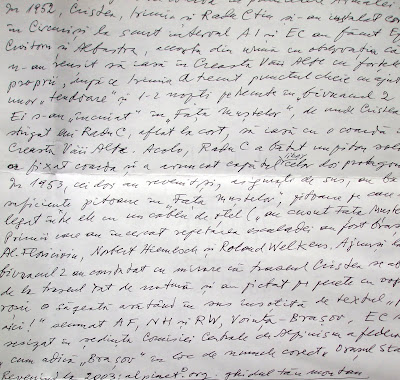 În 1952, Cristea, Irimia și Radu C și-au instalat cor
în Circurișul la scurt interval AI și EC au făcut Ep
Cuitorii și Albastra, acesta din urmă cu observația că
n-au reușit să iasă în Creasta Văii Albe cu forțele
proprii, după ce Irimia A trecut punctul cheie cu aju
unor „tendoare" și 1-2 nopți petrecute în „bivuacul 2
Ei s-au „încuiat" în „Fața Muștelor", de unde Cristea
strigat lui Radu C, aflat la cort, să iasă cu o coardă în
Creasta Văii Albe. Acolo, Radu C a bătut un piton solid
a fixat coarda și a aruncat capătul liber celor doi protagon
În 1953, cei doi au revenit și, asigurați de sus, au bă
suficiente pitoane în „Fața Muștelor", pitoane pe care
legat între ele cu un cablu de oțel („au cusut fața Muște
Primii care au încercat repetarea escaladei au fost Brașo
Al. Floricioiu, Norbert Hiemesch și Roland Welkens. Ajunși la
bivuacul 2 au constatat cu mirare că traseul Cristea se a
de la traseul dat de natură și au pictat pe perete cu vops
roșie o săgeată arătând în sus însoțită de textul „P
aici!" semnat AF, NH și RW, Voința-Brașov. EC
sesizat în ședința Comisiei Centrale de Alpinism a federa
„cum adică „Brașov" în loc de numele corect, Orașul Sta
Revenind la 2003: alpinet.org, ghidul tău montan